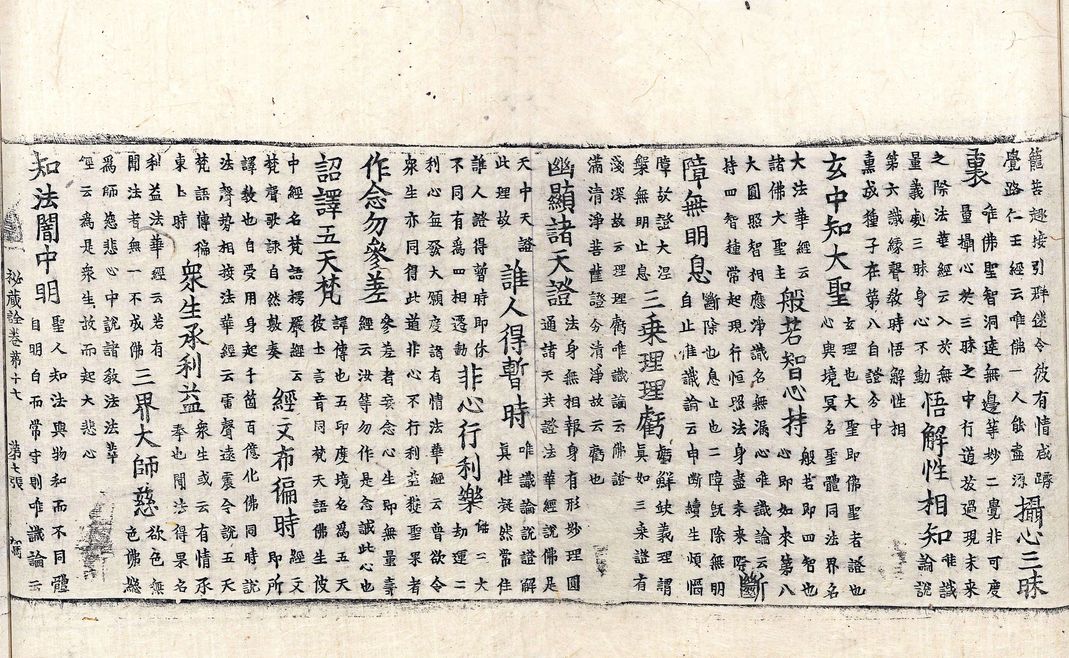 籠苦趣接引群迷令彼有情咸躋
覺路仁王經云唯佛一人能盡源
攝心三昧
裏
唯佛聖智洞達無邊等妙二覺非可度
量攝心於三昧之中行道放過現未來
之際法華經云入於無
量義處三昧身心不動
悟解性相知
唯識
論説
第六識緣聲教時悟解性相
熏成種子在第八自證分中
玄中知大聖
玄理也大聖即佛聖者證也
心與境冥名聖體同法界名
大法華經云
諸佛大聖主
般若智心持
般若即四智也
心即如來第八
大圓照智相應淨識名無漏心唯識論云
持四智種常起現行恒照法身盡未來際
斷
障無明息
斷除也息止也二障既除無明
自止唯識論云由斷續生煩惱
障故證大涅
槃無明止息
三乘理理虧
虧解缺義理謂
真如三乘證有
淺深故云理理虧唯識論云佛證
滿清淨菩薩證分清淨故云虧也
幽顯諸天證
法身無相報身有形妙理圓
通諸天共證法華經説佛是
天中天證
此理故
誰人得暫時
唯識論説證解
真性凝然常住
誰人證得暫時即休
不同有爲四相遷動
非心行利樂
能二大
劫運二
利心每發大願度諸有情法華經云曾欲令
衆生亦同得此道非心不行利益擬聖果者
作念勿參差
參差者妄念心生即無量壽
經云汝等勿作是念誠此心也
詔譯五天梵
譯傳也五印度境名爲五天
彼土言音同梵天語佛生彼
中經名梵語楞嚴經
梵聲歌詠自然敷奏
經文布徧時
經文
即所
譯教也自受用身起千箇百億化佛同時説
法聲勢相接法華經云雷聲遠震令説五天
梵語傳徧
東土時
衆生承利益
衆生或云有情承
奉也聞法得果名
利益法華經云若有
聞法者無一不成佛
三界大師慈
欲色無
色佛愍
爲師慈悲心中説諸教法法華
經云爲是衆生故而起大悲心
知法闇中明
聖人知法與物和而不同體
自明自白而常守則唯識論云
秘藏詮卷第十七 第七張